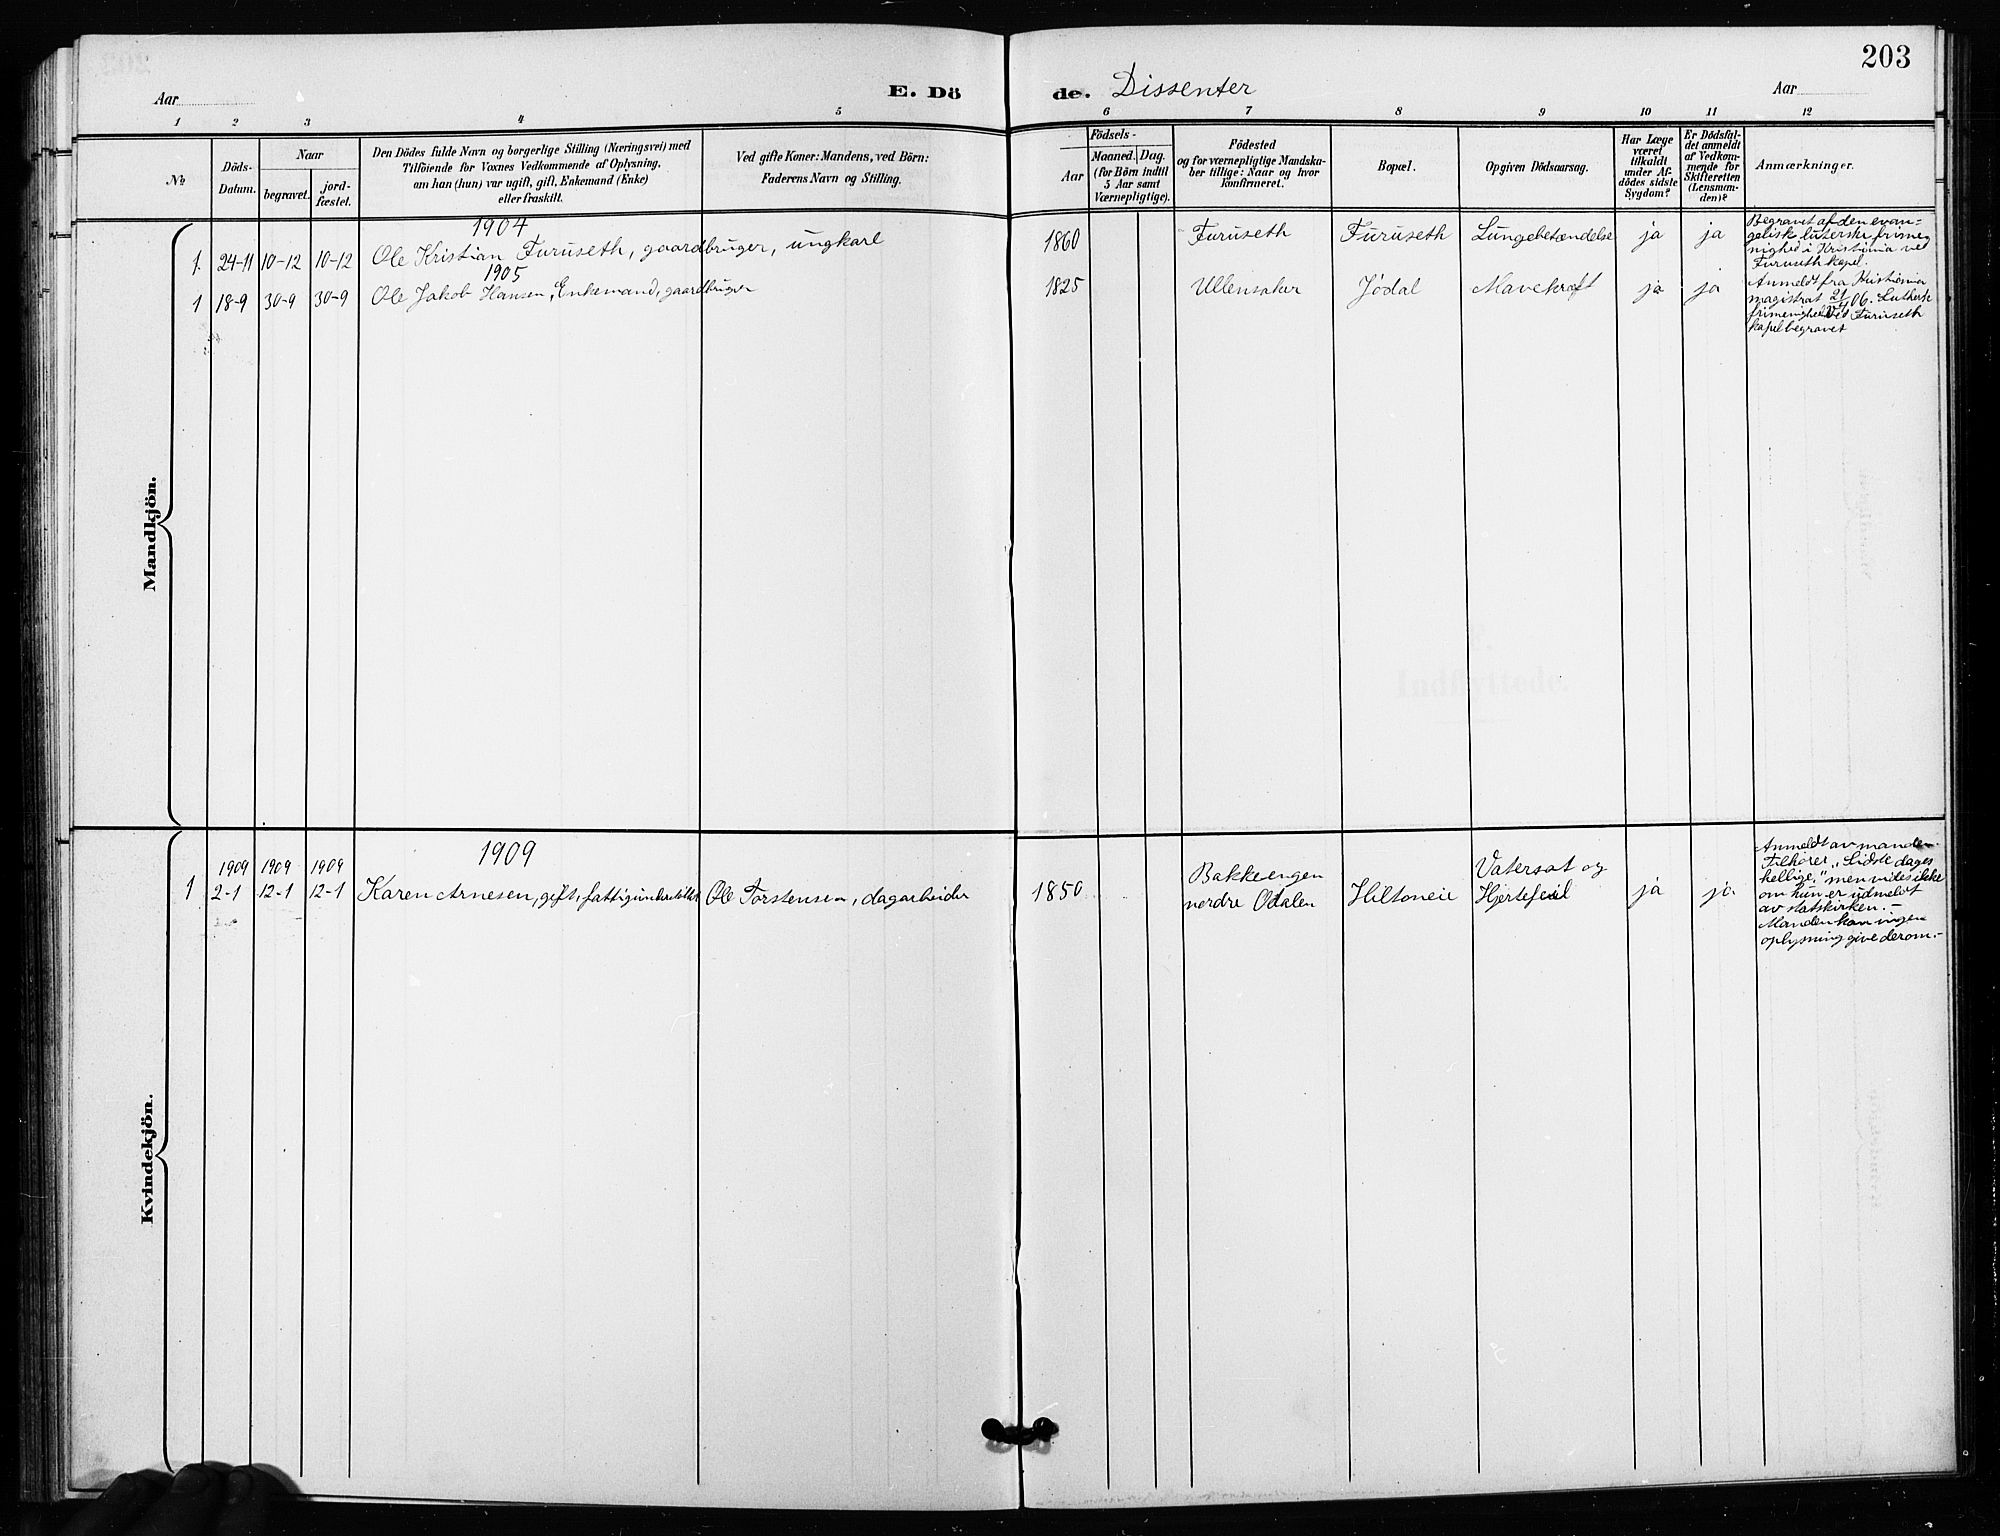 203
Aar
E. Dö
de. Dissenter
Aar
1 2 3 4 5 6 7 8 9 10 11 12
No
Döds-
Datum.
Naar
begravet.
jord-
fæstet.
Den Dödes fulde Navn og borgerlige Stilling (Næringsvei) med
Tilföiende for Voxnes Vedkommende af Oplysning,
om han (hun) var ugift, gift, Enkemand (Enke)
eller fraskilt.
Ved gifte Koner: Mandens, ved Börn:
Faderens Navn og Stilling.
Födsels-
Aar
Maaned. Dag.
(for Börn indtil
5 Aar samt
Værnepligtige).
Födested
og for værnepligtige Mandska-
ber tillige: Naar og hvor
konfirmeret.
Bopæl.
Opgiven Dödsaarsag.
Har Læge
været
tilkaldt
under Af-
dödes sidste
Sygdom?
Er Dödsfal-
det anmeldt
af Vedkom-
mende for
Skifteretten
(Lensman-
den)?
Anmærkninger.
Mandkjön.
1904
1. 24-11 10-12 10-12 Ole Kristian Furuseth, gaardbruger, ungkarl 1860 Furuseth Furuseth Lungebetændelse ja ja
Begravet af den evan-
geliske luterske frime-
nighed i Kristiania ved
Furuseth kapel.
1905
1 18-9 30-9 30-9 Ole Jakob Hansen, Enkemand, gaardbruger 1825 Ullensaker Jödal Mavekræft ja ja
Anmeldt fra Kristiania
magistrat 21/4 06. Luthersk
frimenighed. Ved Furuseth
kapel begravet
Kvindekjön.
1909
1 1909 2-1 1909 12-1 1909 12-1 Karen Arnesen, gift, fattigunderstöttet Ole Torstensen, dagarbeider 1850
Bakkeengen
nordre Odalen
Hiltoneie
Vatersot og
Hjertefeil
ja ja
Anmeldt av manden.
Tilhörer "Sidste dages
hellige," men vides ikke
om hun er udmeldt
av statskirken.-
Manden kan ingen
oplysning give derom.-
Indflyttede.